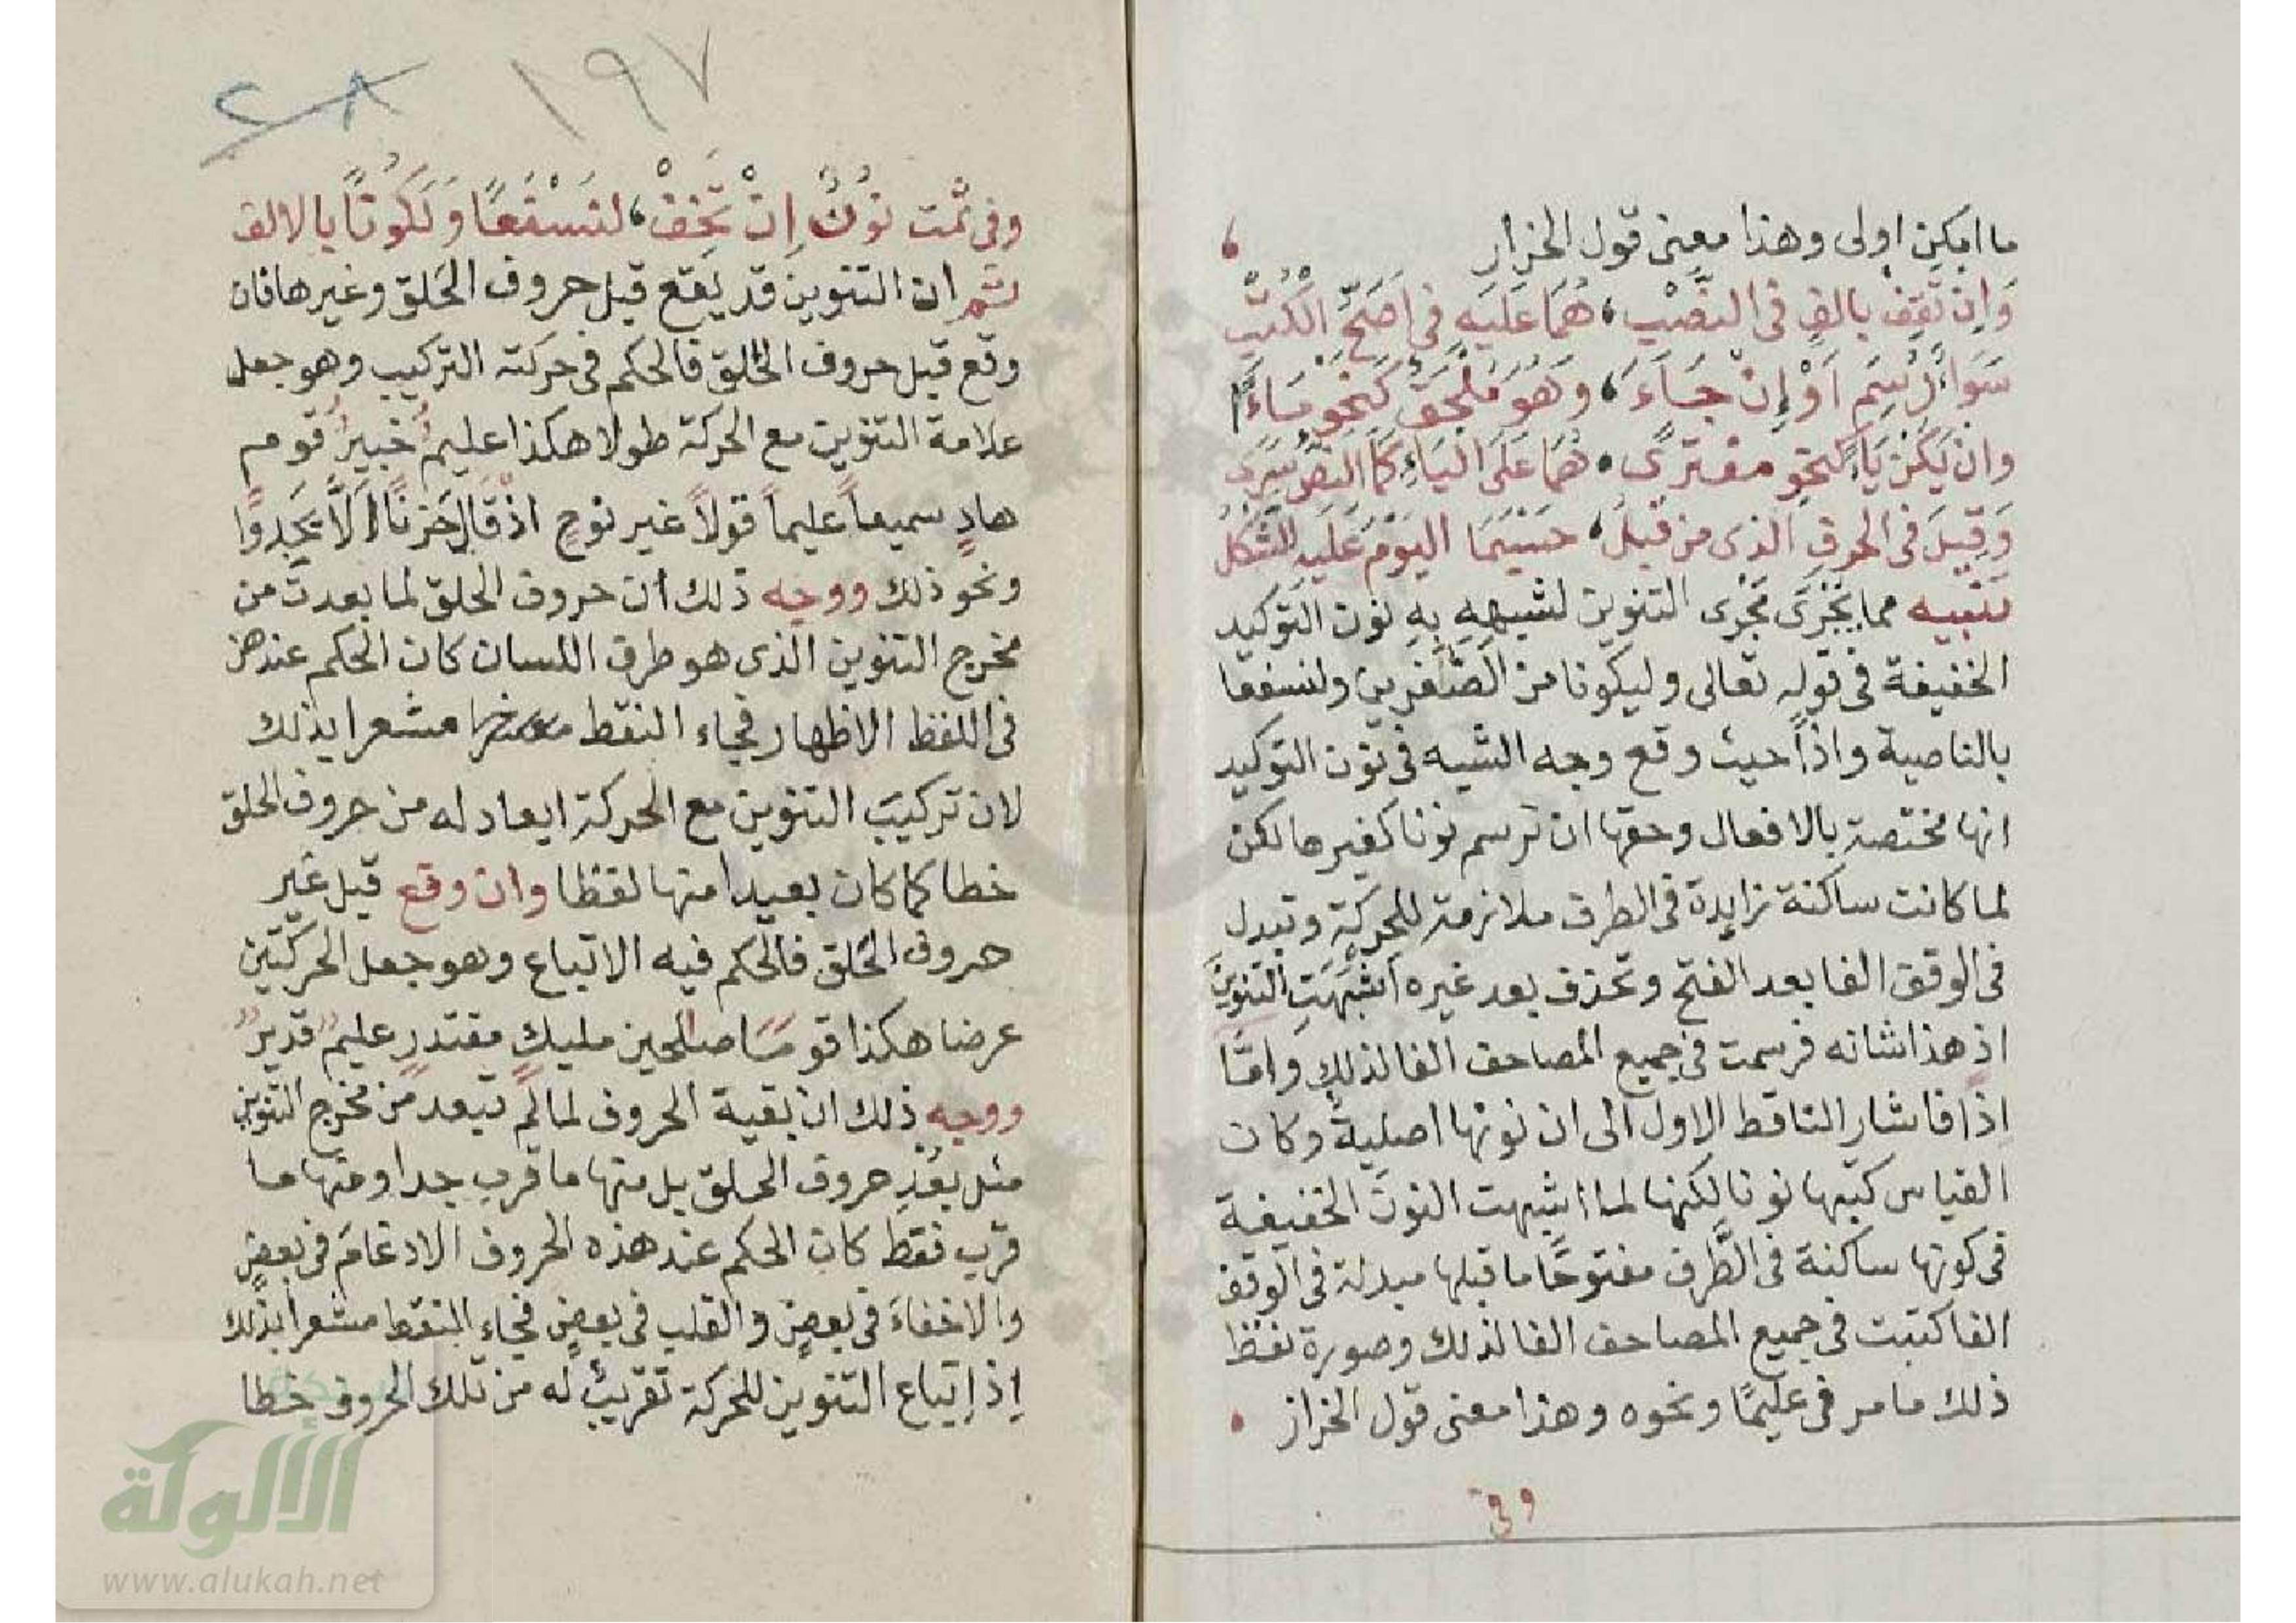 ما امكن اولى وهذا معنى قول الخراز
وَاِن تَقِفْ بالفٍ فى النصْبِ، هُمَا عَلَيهِ فى اصَحِّ الكُتْبِ
سَوَاءً رُسِمَ اَوْ إِنْ جَاءَ، وَهُوَ مُلْحَق كَنَحْوِ مَاءً
وان يَكُنْ يَاءً كنحو مفترًى، هُمَا عَلَى اليَاءِ كَمَا النصُّ سَرَى
وَقِيلَ فى الحرفِ الذى من قَبْلُ، حَسْبَمَا اليَوْمَ عَلَيهِ الشَّكْلُ
تنبيه مما يَجْرِى مَجْرَى التنوين لشبههِ بِهِ نون التوكيد
الخفيفة فى قوله تعالى وليكونا من الصٰغرين ولنسفعا
بالناصية واذاً حيث وقع وجه الشبه فى نون التوكيد
انها مختصة بالافعال وحقها ان ترسم نونا كغيرها لكن
لما كانت ساكنة زايدة فى الطرف ملازمة للحركة وتبدل
فى الوقف الفا بعد الفتح وتحذف بعد غيره اشْبَهَتِ التنوينَ
اذ هذا شانه فرسمت فى جميع المصاحف الفا لذلك وامَّا
اذًا فاشار الناقط الاول الى ان نونها اصلية وكان
القياس كتبها نونا لكنها لما اشبهت النونَ الخفيفة
فى كونها ساكنة فى الطَّرف مفتوحًا ما قبلها مبدلة فى الوقف
الفا كتبت فى جميع المصاحف الفا لذلك وصورة نقط
ذلك ما مر فى عليمًا ونحوه وهذا معنى قول الخراز
وفى
١٩٧
٢٨
وفى ثمَّت نونٌ إِنْ تَخِفْ، لنَسْفَعًا وَلَيَكُونًا بالالف
ثم ان التنوين قد يقع قبل حروف الحلق وغيرها فان
وقع قبل حروف الحلق فالحكم فى حركته التركيب وهو جعل
علامة التنوين مع الحركة طولا هكذا عليمٌ خبيرٌ قوم
هادٍ سميعاً عليماً قولاً غير نوحٍ اذ قال حَزنًا الَّا يَجدوا
ونحو ذلك ووجه ذلك ان حروف الحلق لما بعدت من
مخرج التنوين الذى هو طرف اللسان كان الحكم عندهن
فى اللفظ الاظهار فجاء النقط مشعرا بذلك
لان تركيبَ التنوين مع الحركة ابعاد له من حروف الحلق
خطا كما كان بعيدا منها لفظا وان وقع قبل غير
حروف الحلق فالحكم فيه الاتباع وهو جعل الحركتين
عرضا هكذا قومًا صٰلحين مليكٍ مقتدرٍ عليمٌ قديرٌ
ووجه ذلك ان بقية الحروف لما لم تبعد من مخرج التنوين
مثل بُعْدِ حروف الحلق بل منها ما قرب جدا ومنها ما
قرب فقط كان الحكم عند هذه الحروف الادغامَ فى بعضٍ
والاخفاءَ فى بعضٍ والقلب فى بعضٍ فجاء النقط مشعرا بذلك
إذ إتباع التنوين للحركة تقريبٌ له من تلك الحروف خطا
الألوكة
www.alukah.net